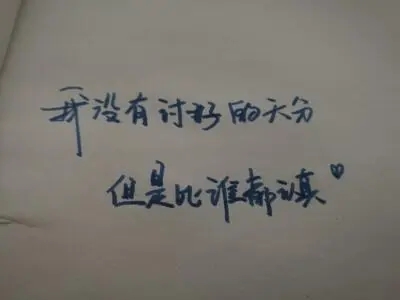 我没有讨好的天分
但是比谁都认真♡